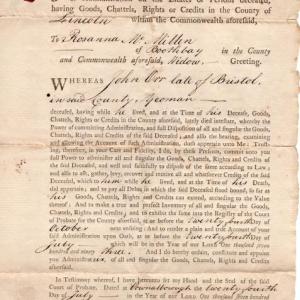 having Goods, Chattels, Rights or Credits in the County of
Lincoln within the Commonwealth aforesaid,
To Rosanna McMillen
of Boothbay in the County
and Commonwealth aforesaid, Widow. Greeting.
WHEREAS John Orr late of Bristol,
in said County, Yeoman
deceased, having while he lived, and at the Time of his Decease, Goods,
Chattels, Rights or Credits in the County aforesaid, lately died intestate, whereby the
Power of committing Administration, and full Disposition of all and singular the Goods,
Chattels, Rights and Credits of the said Deceased, and also the hearing, examining
and allowing the Account of such Administration, doth appertain unto Me; Trust-
ing, therefore, in your Care and Fidelity, I do, by these Presents, commit unto you
full Power to administer all and singular the Goods, Chattels, Rights and Credits of
the said Deceased, and well and faithfully to dispose of the same according to Law;
and also to ask, gather, levy, recover and receive all and whatsoever Credits of the said
Deceased, which to him while he lived, and at the Time of his Death,
did appertain; and to pay all Debts in which the Deceased stood bound, so far as
his Goods, Chattels, Rights and Credits can extend, according to the Value
thereof: And to make a true and perfect Inventory of all and singular the Goods,
Chattels, Rights and Credits, and to exhibit the same into the Registry of the Court
of Probate for the County aforesaid, at or before the twenty fourth Day of
October next ensuing and to render a plain and true Account of your
said Administration upon Oath, at or before the twenty fourth Day of
July in the Year of our LORD One thousand seven
hundred and ninety three. And I do hereby ordain, constitute and appoint
you Administratrix of all and singular the Goods, Chattels, Rights and Credits
aforesaid.
In Testimony whereof, I have hereunto set my Hand and the Seal of the said
Court of Probate. Dated at the twenty fourth
Day of July in the Year of our LORD One thousand seven